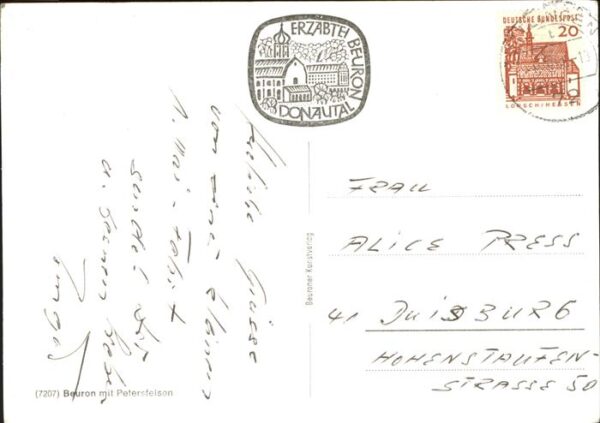 ERZABTEI BEURON
DONAUTAL
DEUTSCHE BUNDESPOST
20
LORSCH/HESSEN
Herzliche Grüsse
von einer kleinen
1. Mai-Fahrt
sendet Dir
Beuroner Kunstverlag
FRAU
ALICE PRESS
41 DUISBURG
HOHENSTAUFEN-
STRASSE 50
(7207) Beuron mit Petersfelsen